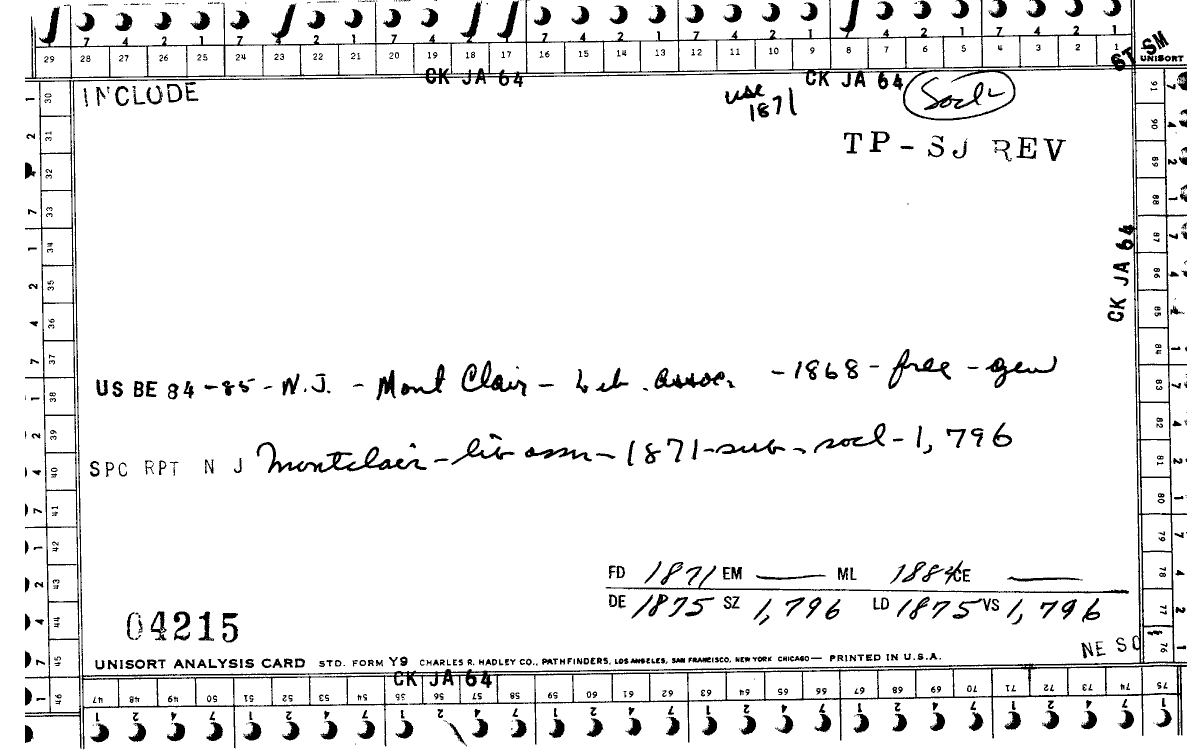 7 4 2 1 7 4 2 1 7 4 2 1 7 4 2 1 7 4 2 1 7 4 2 1
29 28 27 26 25 24 23 22 21 20 19 18 17 16 15 14 13 12 11 10 9 8 7 6 5 4 3 2 1
ST SM
UNISORT
CK JA 64 CK JA 64
INCLUDE
use 1871
Socl
TP - SJ REV
CK JA 64
US BE 84-85 - N.J. - Mont Clair - Lib. Assoc. - 1868 - free - gen
SPC RPT N J Montclair - lib assn - 1871 - sub - socl - 1,796
FD 1871 EM —— ML 1884 CE ——
DE 1875 SZ 1,796 LD 1875 VS 1,796
04215
NE SO
UNISORT ANALYSIS CARD STD. FORM Y9 CHARLES R. HADLEY CO., PATHFINDERS, LOS ANGELES, SAN FRANCISCO, NEW YORK CHICAGO — PRINTED IN U.S.A.
CK JA 64
30 31 32 33 34 35 36 37 38 39 40 41 42 43 44 45 46
47 48 49 50 51 52 53 54 55 56 57 58 59 60 61 62 63 64 65 66 67 68 69 70 71 72 73 74 75
76 77 78 79 80 81 82 83 84 85 86 87 88 89 90 91